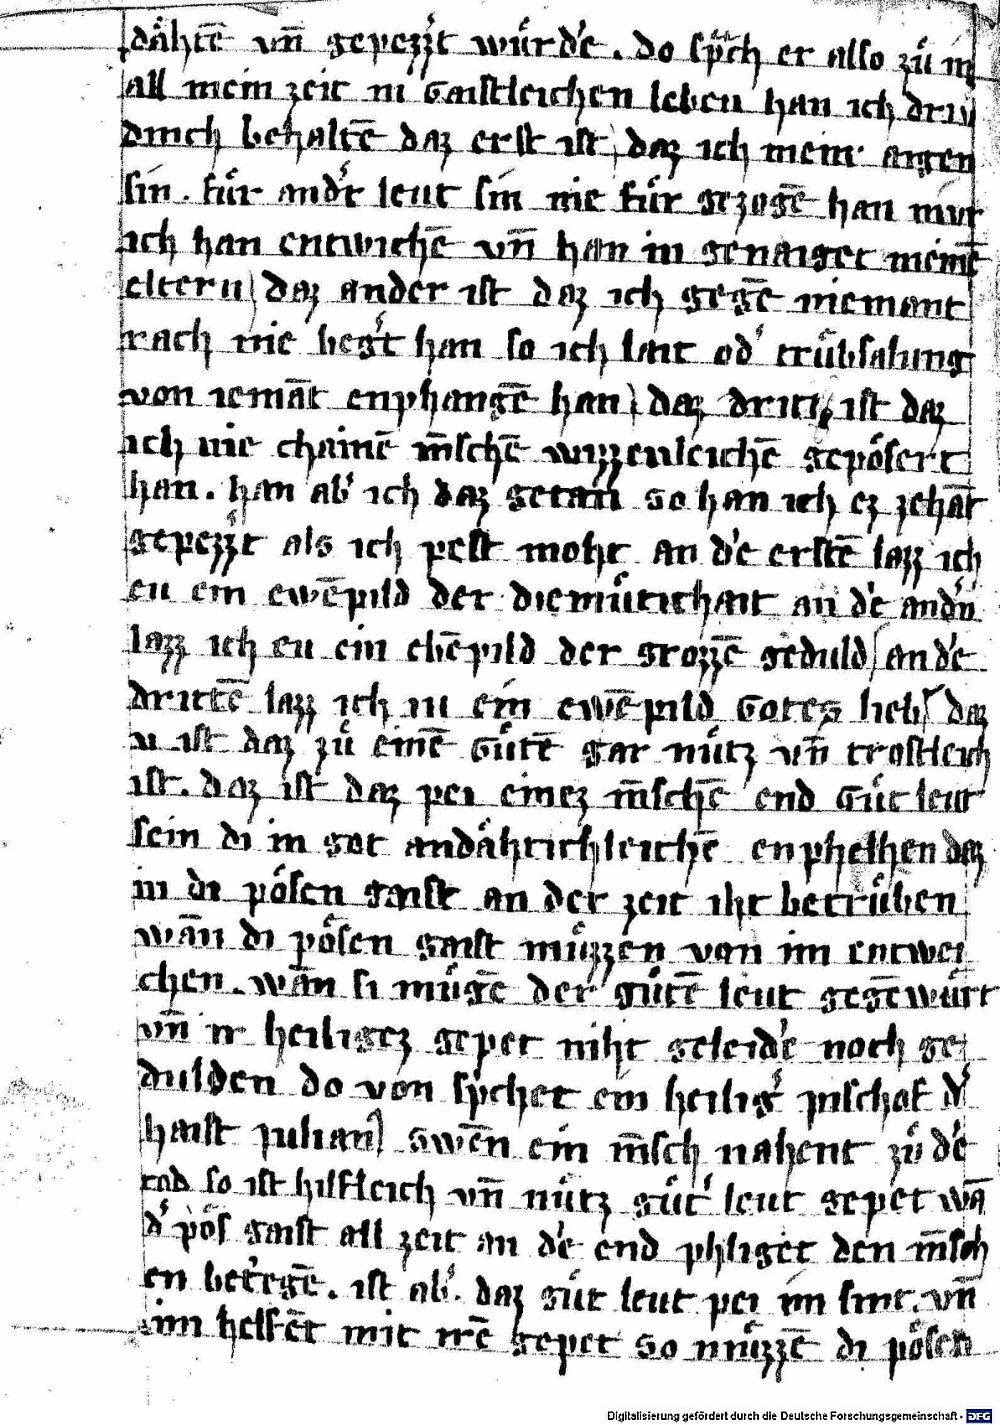 dåhtē vn̄ gepezzˀt wůrdˀe . do sp̄ch er also zů in
all mein zeit in gaistleichen leben han ich driv
dinch behaltē daz erst ist / daz ich mein aigen
sin . für andˀr leut sin nie für gezogē han mvr
ich han entwichē vn̄ han in genaiget meinē
eltern / daz ander ist daz ich gegē niemant
rach nie begˀt han so ich lait odˀ trůbsalung
von iemāt enphangē han / daz dritt ist daz
ich nie chainē m̄schē wizzenleichē gepösert
han . han abˀ ich daz getan so han ich ez zehāt
gepezzˀt als ich pest moht an dˀe erstē lazz ich
eu ein ewēpild der diemůtichait an dˀe andˀn
lazz ich eu ein ebēpild der grozzē geduld / an dˀe
drittē lazz ich iu ein ewēpild gotes lieb / daz
vi ist daz zů einē gůtē gar nůtz vn̄ trostleich
ist . daz ist daz pei einez m̄schē end gůt leut
sein di in got andåhtichleichē enphelhen daz
in di pösen gaist an der zeit iht betrůben
wān di pösen gaist můzzen von im entwei
chen . wān si mügē der gůtē leut gegēwůrt
vn̄ ir heiligez gepet niht geleidˀe noch ge
dulden do von sp̄chet ein heiligˀ pischof dˀ
haist julian / swēn ein m̄sch nahent zů dˀe
tod so ist hilfleich vn̄ nůtz gůtˀ leut gepet wā
dˀ pös gaist all zeit an dˀe end phliget den m̄sch
en betˀegē . ist abˀ . daz gůt leut pei im sint . vn̄
im helfēt mit irē gepet so můzzē di pösen
Digitalisierung gefördert durch die Deutsche Forschungsgemeinschaft - DFG